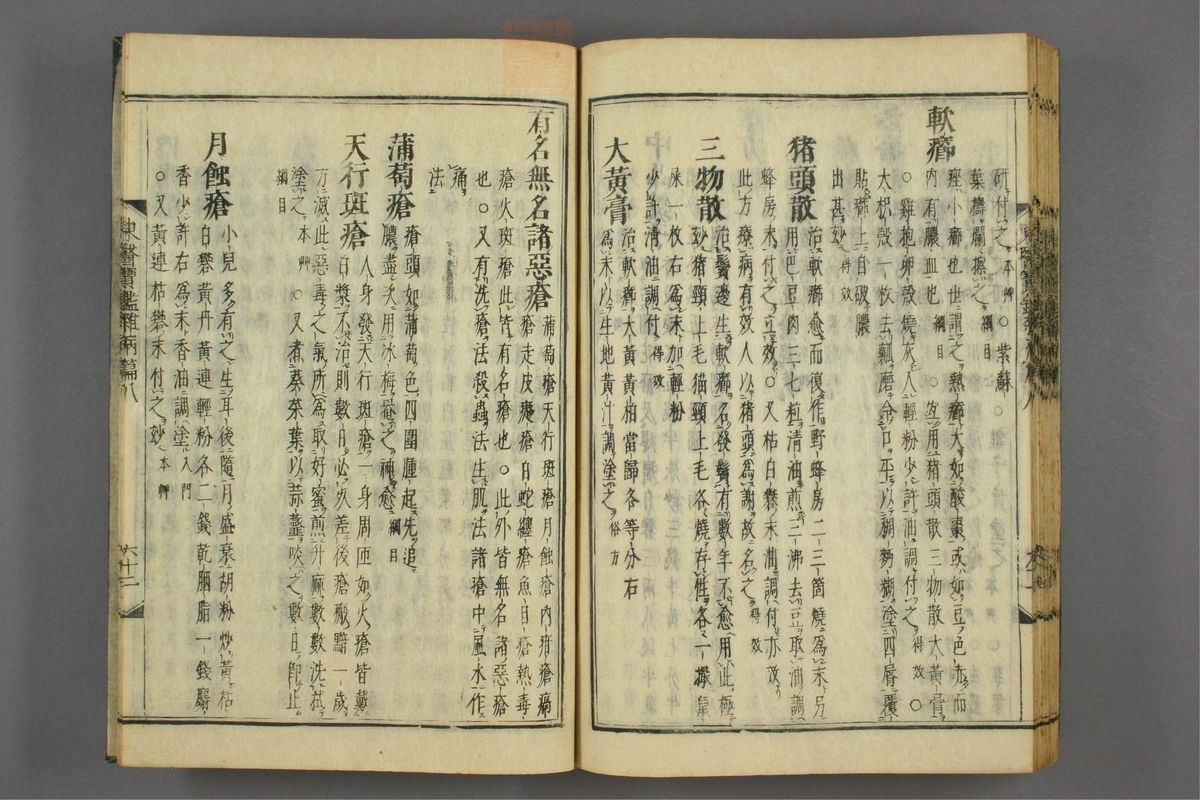 研付之 本艸 ○紫蘇
葉擣爛摻之 綱目
軟癤
痤小癤也世謂之熱癤大如酸棗或如豆色赤而
內有膿血也 綱目 ○宜用猪頭散三物散大黃膏
○雞抱卵殼燒灰入輕粉少許油調付之 得效 ○
大枳殼一枚去瓤磨令口平以稠麪糊塗四唇覆
貼癤上自破膿
出甚妙 得效
猪頭散 治軟癤愈而復作野蜂房二三箇燒爲末另
用巴豆肉三七粒清油煎三沸去豆取油調
蜂房末付之立效○又枯白礬末油調付亦效
此方療病有效人以猪頭爲謝故名之 得效
三物散 治鬢邊生軟癤名發鬢有數年不愈用此極
妙猪頸上毛猫頸上毛各燒存性各一撮鼠
屎一枚右爲末加輕粉
少許清油調付 得效
大黃膏 治軟癤大黃黃柏當歸各等分右
爲末以生地黃汁調塗之 俗方
有名無名諸惡瘡 蒲萄瘡天行斑瘡月蝕瘡內疳瘡瘑
瘡走皮瘡白蛇纏瘡魚目瘡熱毒
瘡火斑瘡此皆有名瘡也○此外皆無名諸惡瘡
也○又有洗瘡法殺蟲法生肌法諸瘡中風水作
痛
法
蒲萄瘡 瘡頭如蒲萄色四圍腫起先追
膿盡又用氷梅歛之神愈 綱目
天行斑瘡 人身發天行斑瘡一身周匝如火瘡皆戴
白漿不治則數日必死差後瘡瘢黯一歲
方滅此惡毒之氣所爲取好蜜煎升麻數數洗拭
塗之 本艸 ○又煮葵菜葉以蒜虀啖之數日卽止
綱目
月蝕瘡 小兒多有之生耳後隨月盛衰胡粉炒黃枯
白礬黃丹黃連輕粉各二錢乾胭脂一錢麝
香少許右爲末香油調塗 入門
○又黃連枯礬末付之妙 本艸
東醫寶鑑雜病篇八
六十二